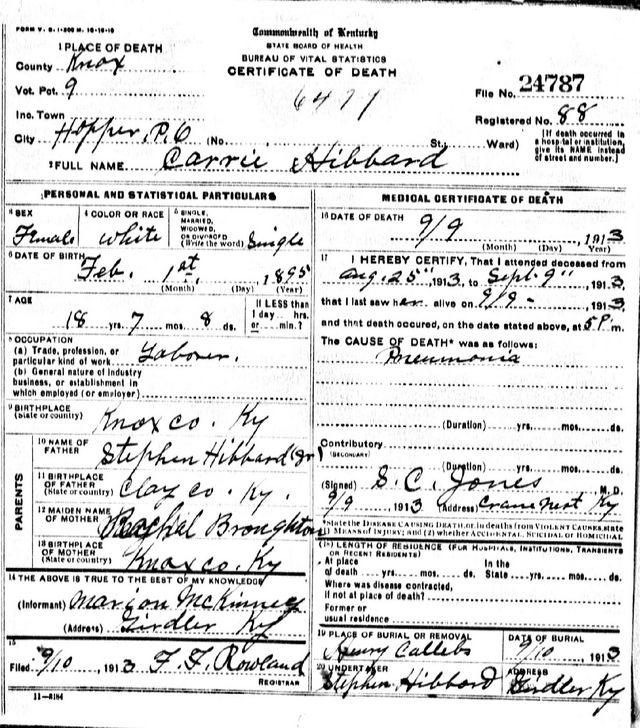 FORM V. S. 1-200 M. 10-10-10
Commonwealth of Kentucky
STATE BOARD OF HEALTH
BUREAU OF VITAL STATISTICS
CERTIFICATE OF DEATH
1 PLACE OF DEATH
County Knox
Vot. Pct. 9
Inc. Town
City Hopper, P.O (No. , St.; Ward)
6477
File No. 24787
Registered No. 88
(If death occurred in a hospital or institution, give its NAME instead of street and number.)
2 FULL NAME Carrie Hibbard
PERSONAL AND STATISTICAL PARTICULARS
3 SEX Female
4 COLOR OR RACE white
5 SINGLE, MARRIED, WIDOWED, OR DIVORCED (Write the word) Single
6 DATE OF BIRTH Feb. 1st, 1895
(Month) (Day) (Year)
7 AGE
18 yrs. 7 mos. 8 ds.
If LESS than 1 day .... hrs. or .... min.?
8 OCCUPATION
(a) Trade, profession, or particular kind of work Laborer.
(b) General nature of industry business, or establishment in which employed (or employer)
9 BIRTHPLACE (State or country) Knox co. Ky
PARENTS
10 NAME OF FATHER Stephen Hibbard (Jr)
11 BIRTHPLACE OF FATHER (State or country) Clay co. Ky.
12 MAIDEN NAME OF MOTHER Rachel Broughton
13 BIRTHPLACE OF MOTHER (State or country) Knox co. Ky
14 THE ABOVE IS TRUE TO THE BEST OF MY KNOWLEDGE
(Informant) Marion McKinney
(Address) Girdler Ky
15
Filed 9/10 1913 F. F. Rowland
REGISTRAR
11-8184
MEDICAL CERTIFICATE OF DEATH
16 DATE OF DEATH 9/9 1913
(Month) (Day) (Year)
17 I HEREBY CERTIFY, That I attended deceased from
Aug. 25", 1913, to Sept. 9", 1913,
that I last saw her alive on 9/9- 1913,
and that death occurred, on the date stated above, at 5 P. m.
The CAUSE OF DEATH* was as follows:
Pneumonia
(Duration) yrs. mos. ds.
Contributory
(SECONDARY)
(Duration) yrs. mos. ds.
(Signed) S. C. Jones M. D.
9/9 1913 (Address) Crane Nest Ky
*State the DISEASE CAUSING DEATH, or, in deaths from VIOLENT CAUSES, state
(1) MEANS OF INJURY; and (2) whether ACCIDENTAL, SUICIDAL OR HOMICIDAL
18 LENGTH OF RESIDENCE (FOR HOSPITALS, INSTITUTIONS, TRANSIENTS OR RECENT RESIDENTS)
At place of death yrs. mos. ds. In the State yrs. mos. ds.
Where was disease contracted, if not at place of death?
Former or usual residence
19 PLACE OF BURIAL OR REMOVAL Henry Callebs
DATE OF BURIAL 9/10, 1913
20 UNDERTAKER Stephen Hibbard
ADDRESS Girdler Ky